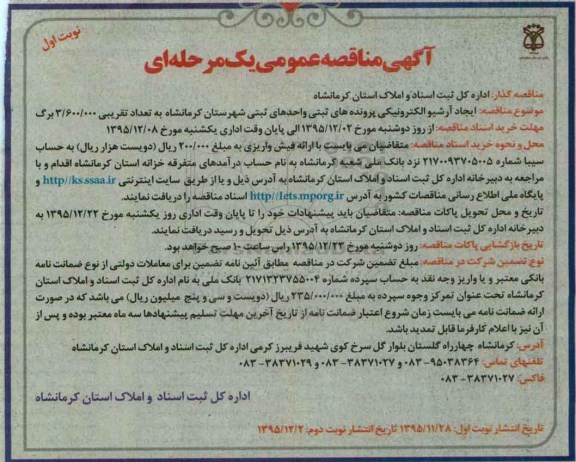 نوبت اول
آگهی مناقصه عمومی یک مرحله‌ای
مناقصه گذار: اداره کل ثبت اسناد و املاک استان کرمانشاه
موضوع مناقصه: ایجاد آرشیو الکترونیکی پرونده های ثبتی واحدهای ثبتی شهرستان کرمانشاه به تعداد تقریبی ۳/۶۰۰/۰۰۰ برگ
مهلت خرید اسناد مناقصه: از روز دوشنبه مورخ ۱۳۹۵/۱۲/۰۲ الی پایان وقت اداری یکشنبه مورخ ۱۳۹۵/۱۲/۰۸
محل و نحوه خرید اسناد مناقصه: متقاضیان می بایست با ارائه فیش واریزی به مبلغ ۲۰۰/۰۰۰ ریال (دویست هزار ریال) به حساب
سیبا شماره ۲۱۷۰۰۹۳۷۰۵۰۰۵ نزد بانک ملی شعبه کرمانشاه به نام حساب درآمدهای متفرقه خزانه استان کرمانشاه اقدام و با
مراجعه به دبیرخانه اداره کل ثبت اسناد و املاک استان کرمانشاه به آدرس ذیل و یا از طریق سایت اینترنتی http://ks.ssaa.ir و
پایگاه ملی اطلاع رسانی مناقصات کشور به آدرس http://iets.mporg.ir اسناد مناقصه را دریافت نمایند.
تاریخ و محل تحویل پاکات مناقصه: متقاضیان باید پیشنهادات خود را تا پایان وقت اداری روز یکشنبه مورخ ۱۳۹۵/۱۲/۲۲ به
دبیرخانه اداره کل ثبت اسناد و املاک استان کرمانشاه به آدرس ذیل تحویل و رسید دریافت نمایند.
تاریخ بازگشایی پاکات مناقصه: روز دوشنبه مورخ ۱۳۹۵/۱۲/۲۳ راس ساعت ۱۰ صبح خواهد بود.
نوع تضمین شرکت در مناقصه: مبلغ تضمین شرکت در مناقصه مطابق آئین نامه تضمین برای معاملات دولتی از نوع ضمانت نامه
بانکی معتبر و یا واریز وجه نقد به حساب سپرده شماره ۲۱۷۱۳۲۳۷۵۵۰۰۴ بانک ملی به نام اداره کل ثبت اسناد و املاک استان
کرمانشاه تحت عنوان تمرکز وجوه سپرده به مبلغ ۲۳۵/۰۰۰/۰۰۰ ریال (دویست و سی و پنج میلیون ریال) می باشد که در صورت
ارائه ضمانت نامه می بایست زمان شروع اعتبار ضمانت نامه از تاریخ آخرین مهلت تسلیم پیشنهادها سه ماه معتبر بوده و پس از
آن نیز با اعلام کارفرما قابل تمدید باشد.
آدرس: کرمانشاه چهارراه گلستان بلوار گل سرخ کوی شهید فریبرز کرمی اداره کل ثبت اسناد و املاک استان کرمانشاه
تلفنهای تماس: ۹۵۰۳۸۳۶۴-۰۸۳ و ۳۸۳۷۱۰۲۷-۰۸۳ و ۳۸۳۷۱۰۲۹-۰۸۳
فاکس: ۳۸۳۷۱۰۲۷-۰۸۳
اداره کل ثبت اسناد و املاک استان کرمانشاه
تاریخ انتشار نوبت اول: ۱۳۹۵/۱۱/۲۸ تاریخ انتشار نوبت دوم: ۱۳۹۵/۱۲/۲